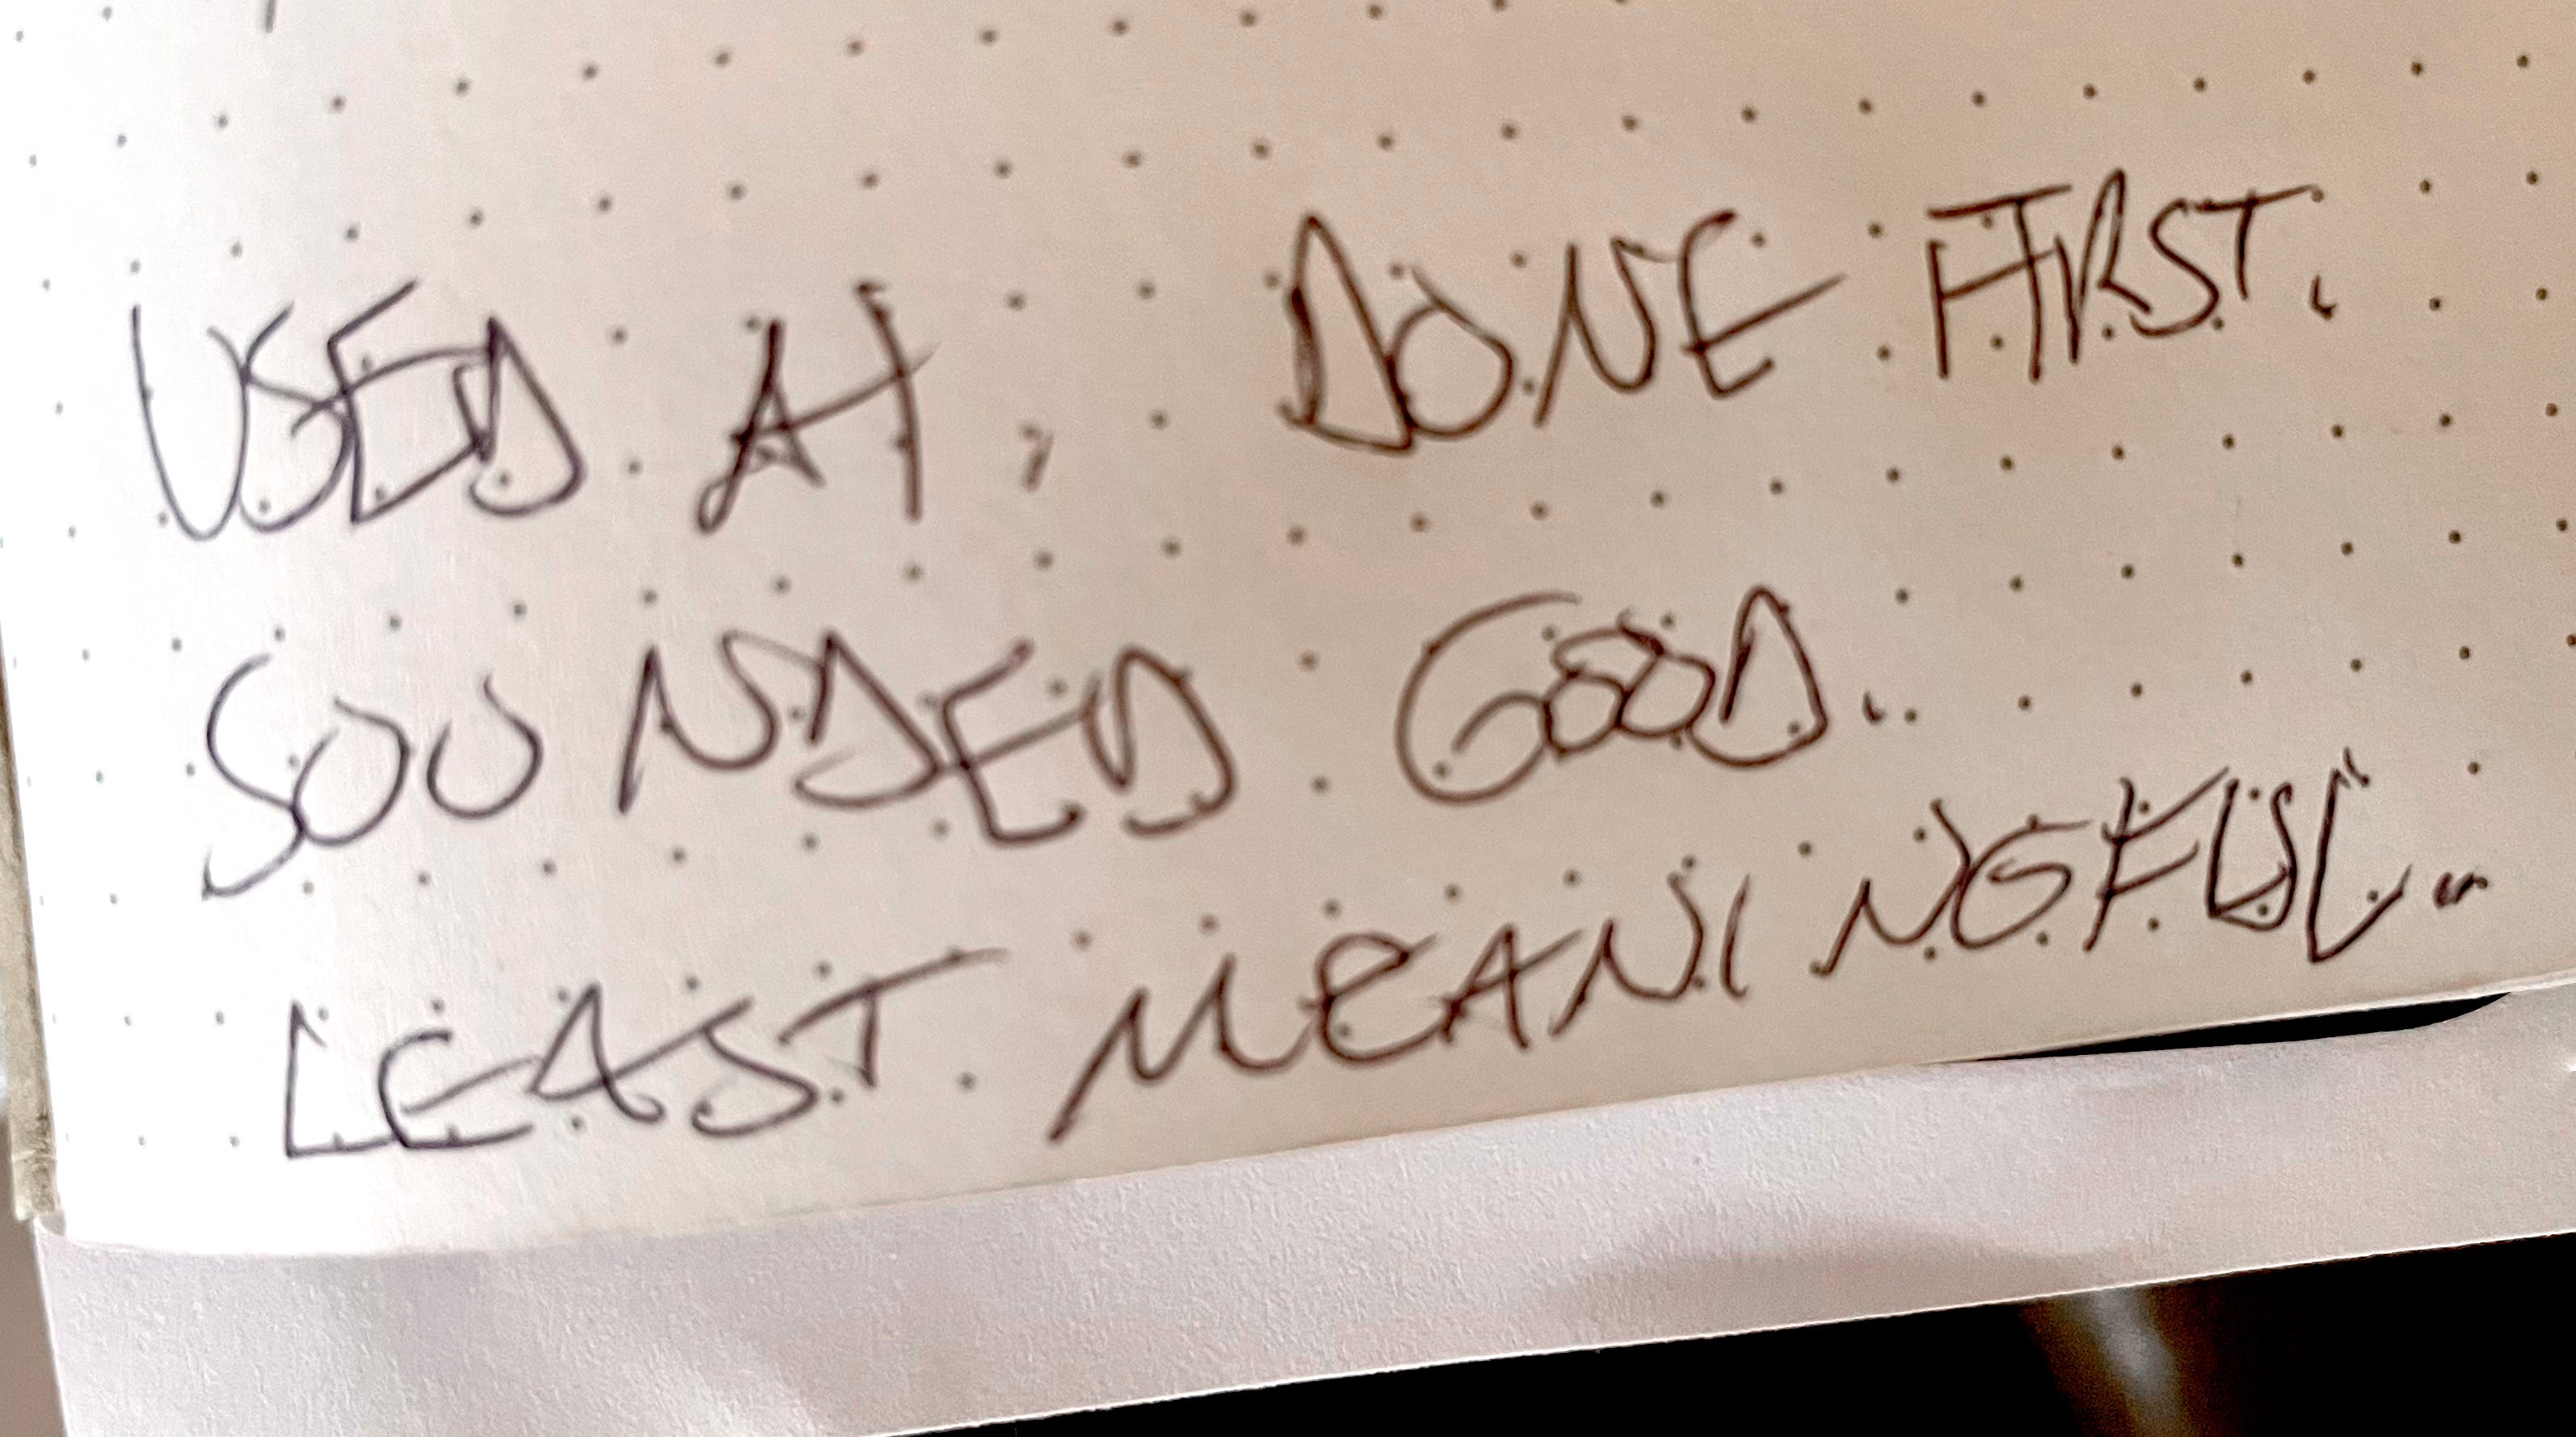 USED AI. DONE FIRST.
SOUNDED GOOD.
LEAST MEANINGFUL.